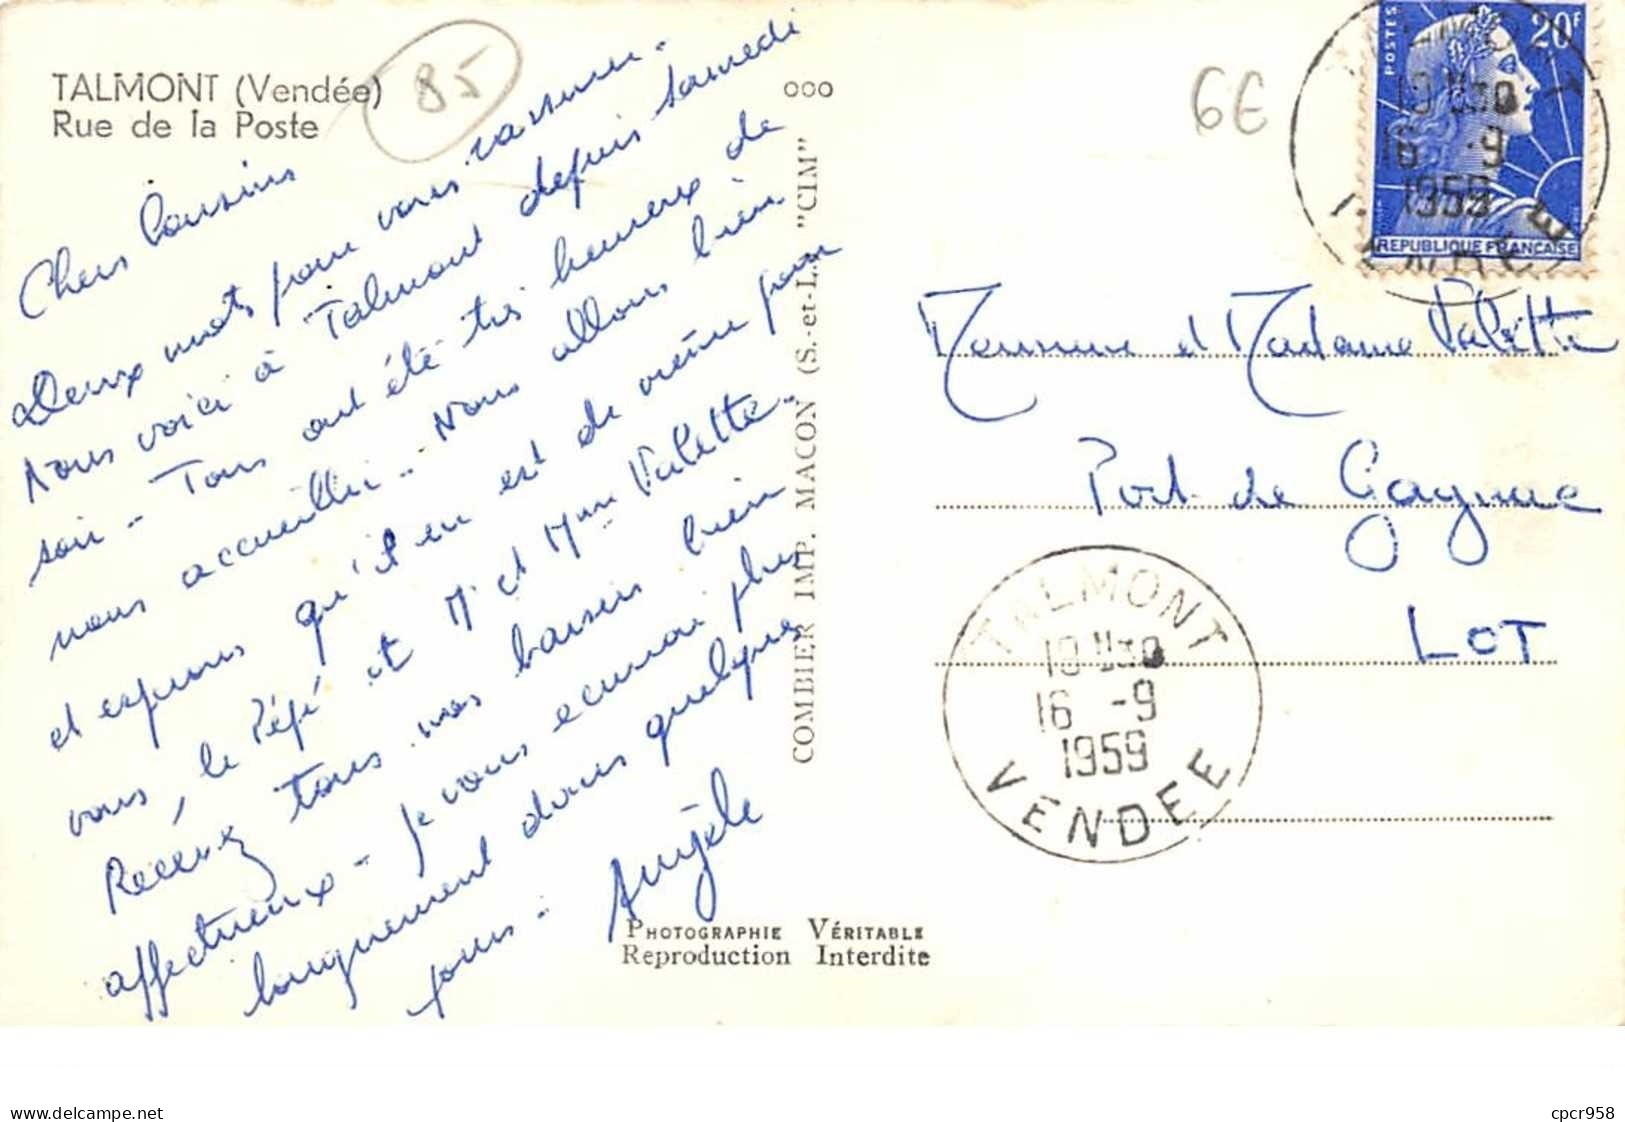 TALMONT (Vendée)
Rue de la Poste
85
Chers Cousins
Deux mots pour vous rassurer.
Nous voici à Talmont depuis samedi
soir - Tous ont été très heureux de
nous accueillir - Nous allons bien
et espérons qu'il en est de même pour
vous, le Pépé et Mr et Mme Valette.
Recevez tous mes baisers bien
affectueux - Je vous écrirai plus
longuement dans quelques
jours - Angèle
000
COMBIER IMP. MACON (S.-et-L. "CIM"
PHOTOGRAPHIE VÉRITABLE
Reproduction Interdite
6E
POSTES
20F
REPUBLIQUE FRANÇAISE
16 -9
1959
Monsieur et Madame Valette
Port de Gagnac
LOT
TALMONT
16 -9
1959
VENDEE
delcampe.net
cpcr958